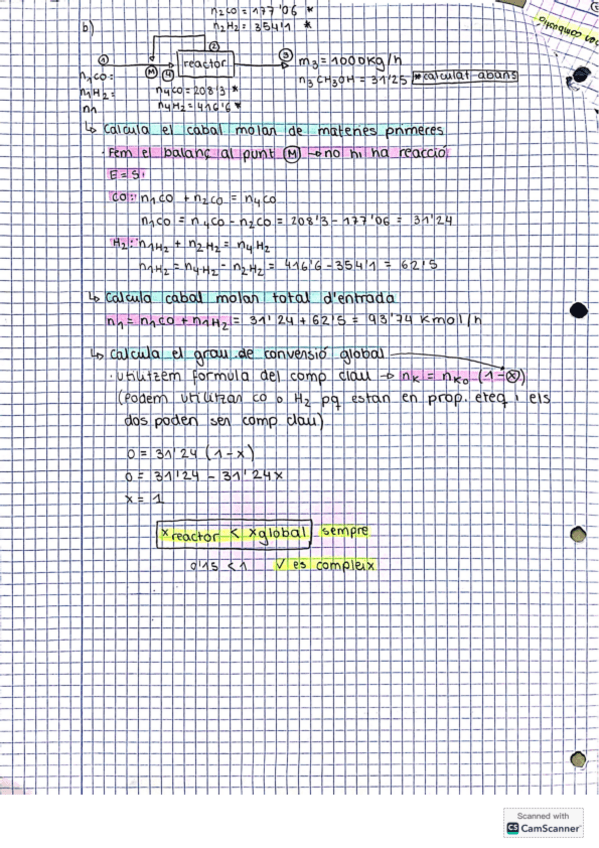 n2co = 177'06 *
n2H2 = 354'1 *
b)
① ② ③
M ④ reactor
m3 = 1000kg/h
n1co:
n3CH3OH = 31'25 *calculat abans
n1H2 =
n4co = 208'3 *
n1
n4H2 = 416'6 *
↳ Calcula el cabal molar de matèries primeres
· Fem el balanç al punt M → no hi ha reacció
E = S.
CO: n1co + n2co = n4co
n1co = n4co - n2co = 208'3 - 177'06 = 31'24
H2: n1H2 + n2H2 = n4H2
n1H2 = n4H2 - n2H2 = 416'6 - 354'1 = 62'5
↳ Calcula cabal molar total d'entrada
n1 = n1co + n1H2 = 31'24 + 62'5 = 93'74 Kmol/h
↳ Calcula el grau de conversió global
· utilitzem formula del comp clau → nK = nK0 (1-x)
(podem utilitzar co o H2 pq estan en prop. eteq i els
dos poden ser comp clau)
0 = 31'24 (1-x)
0 = 31'24 - 31'24x
x = 1
xreactor < xglobal sempre
0'15 < 1 ✓ es compleix
Scanned with
CS CamScanner